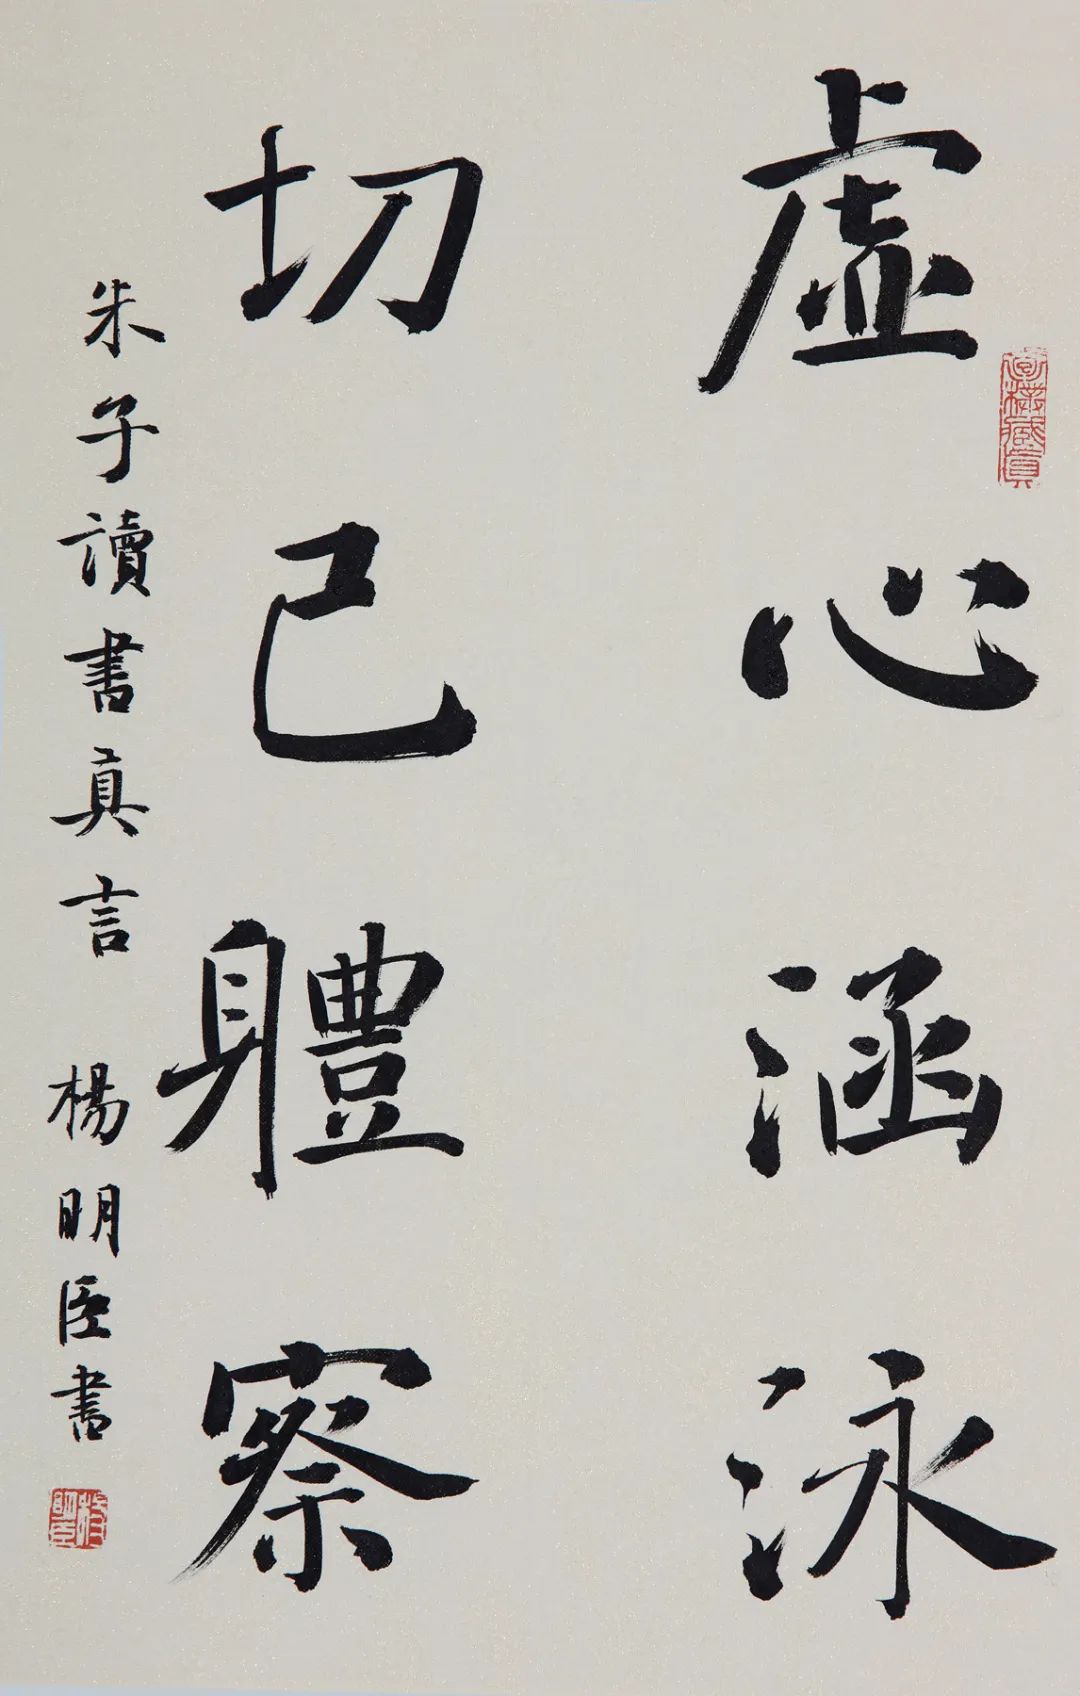 虛心涵泳
切己軆察
朱子讀書真言 楊明臣書